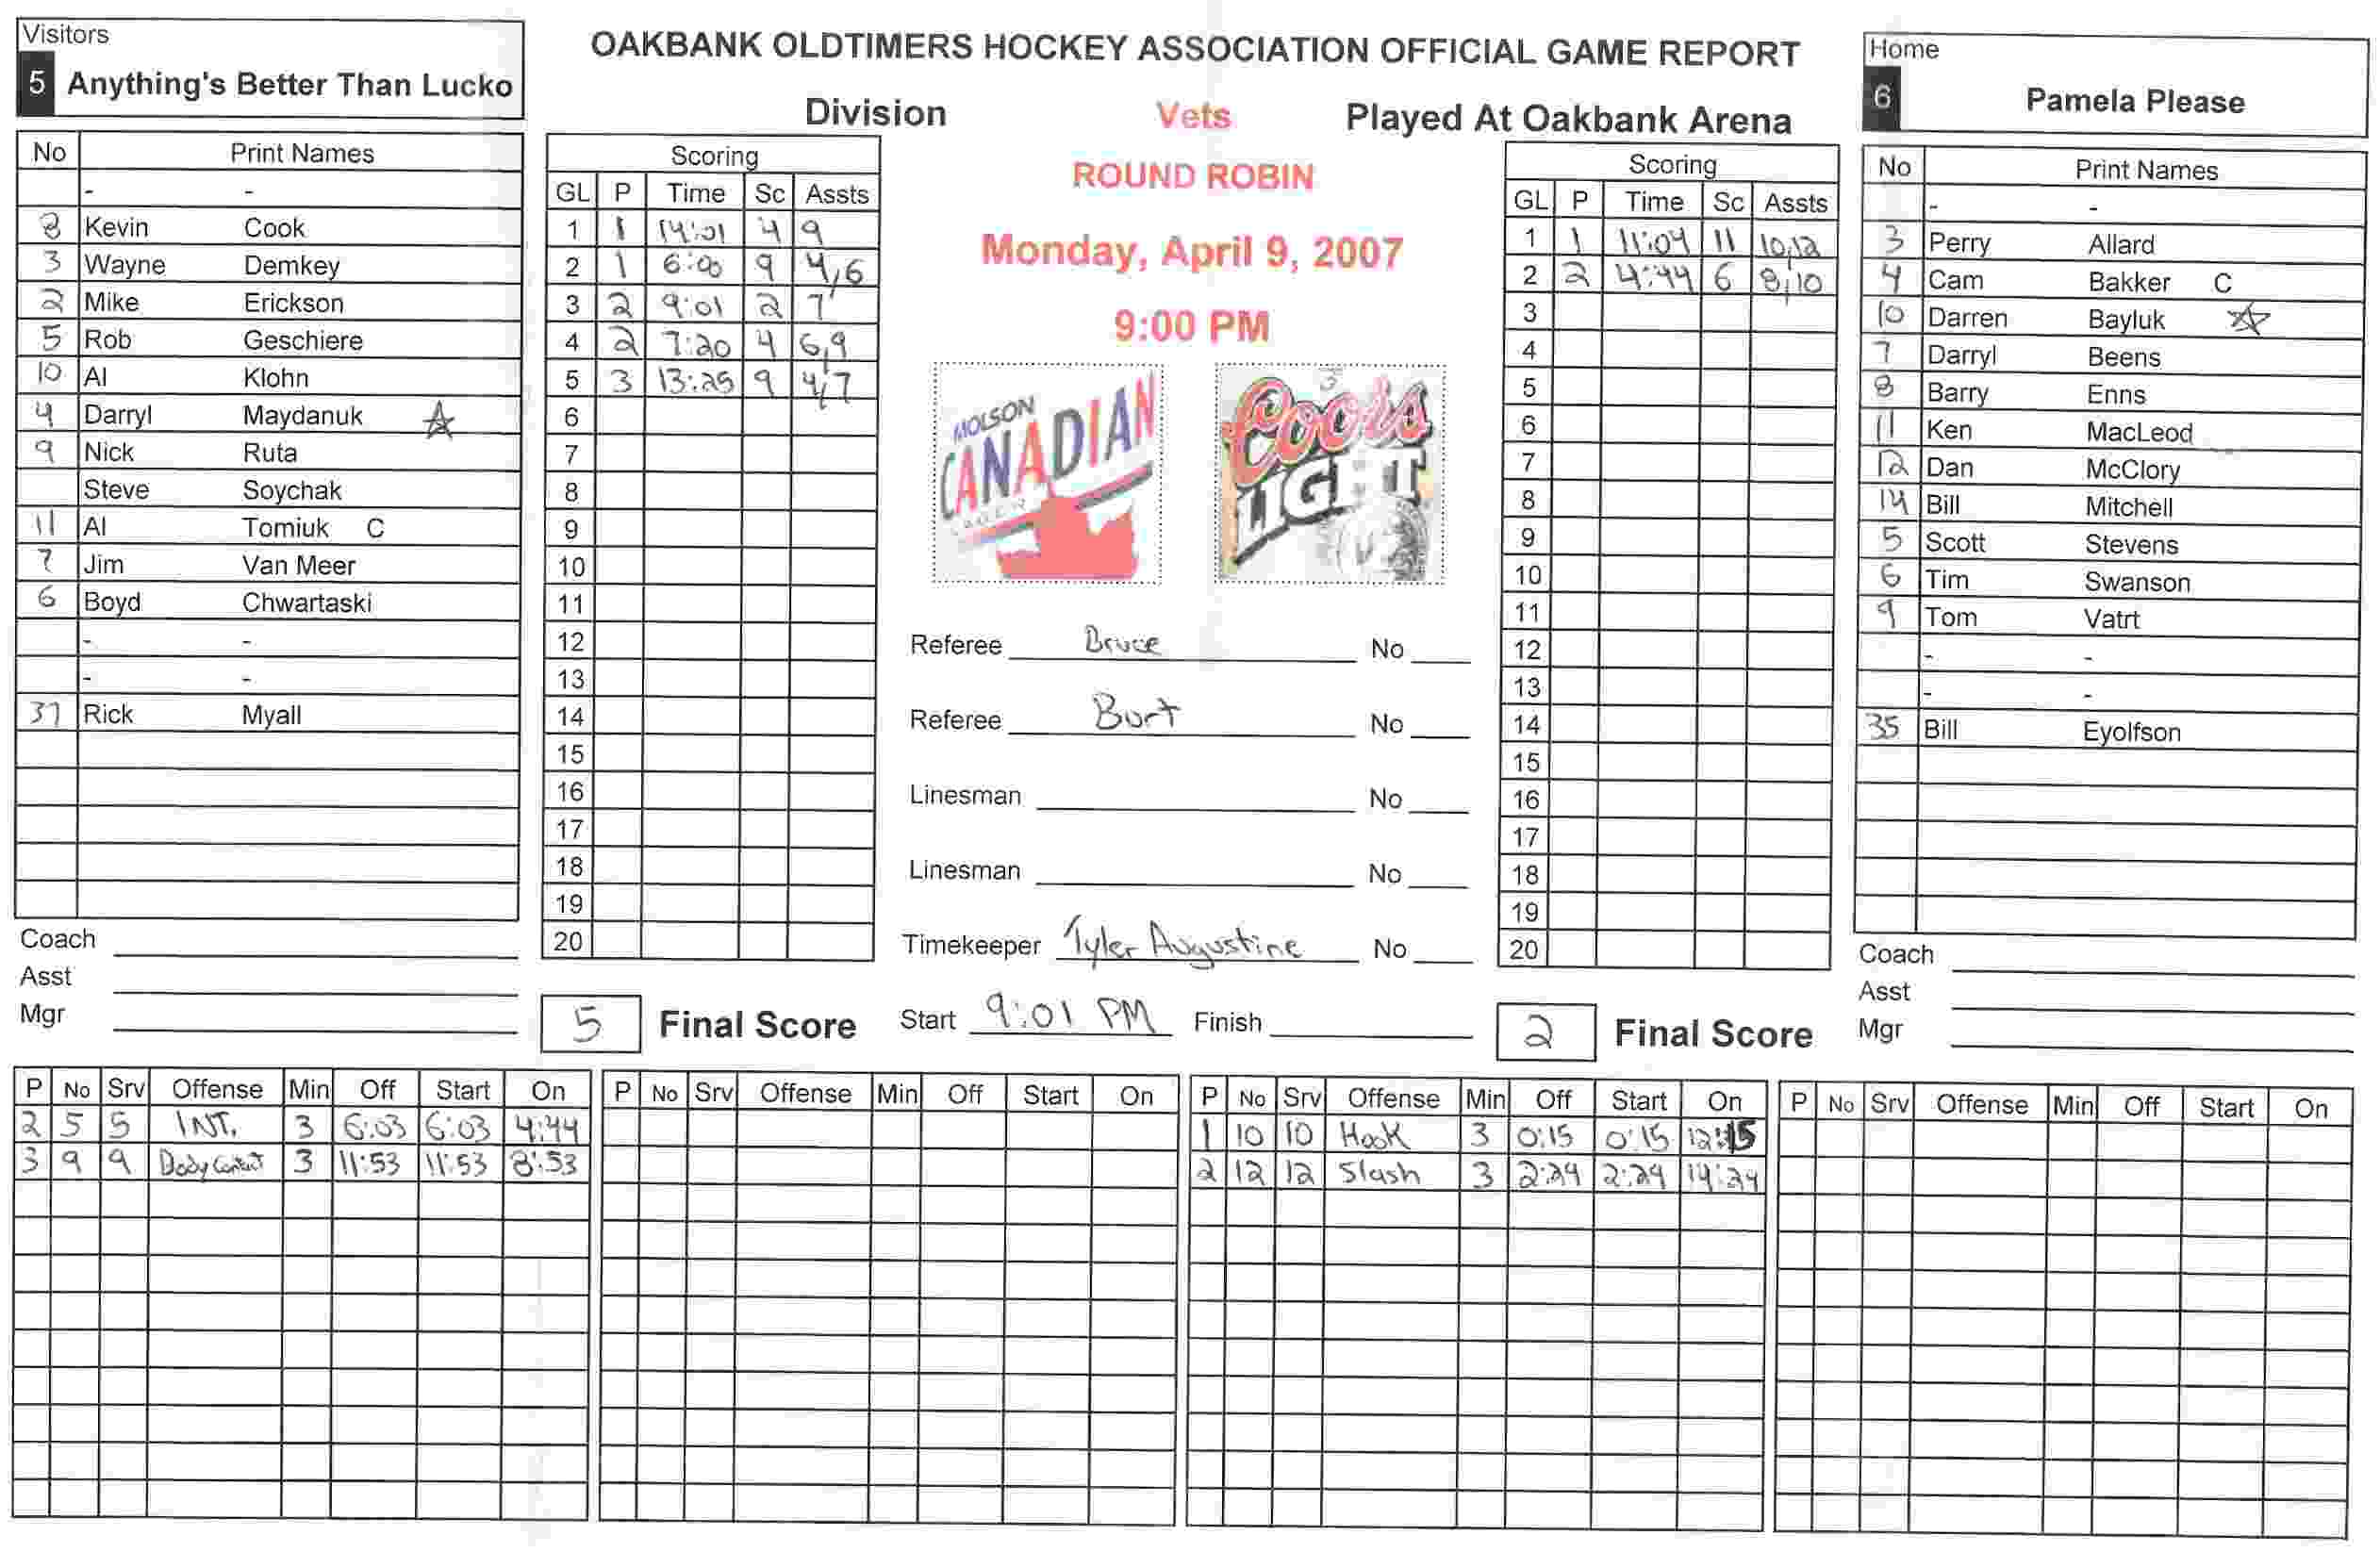 Visitors
5 Anything's Better Than Lucko
OAKBANK OLDTIMERS HOCKEY ASSOCIATION OFFICIAL GAME REPORT
Division Vets Played At Oakbank Arena
ROUND ROBIN
Monday, April 9, 2007
9:00 PM
Home
6 Pamela Please
No Print Names
- -
8 Kevin Cook
3 Wayne Demkey
2 Mike Erickson
5 Rob Geschiere
10 Al Klohn
4 Darryl Maydanuk ☆
9 Nick Ruta
Steve Soychak
11 Al Tomiuk C
7 Jim Van Meer
6 Boyd Chwartaski
- -
- -
37 Rick Myall
Coach
Asst
Mgr
Scoring
GL P Time Sc Assts
1 1 14:01 4 9
2 1 6:00 9 4,6
3 2 9:01 2 7
4 2 7:20 4 6,9
5 3 13:25 9 4,7
6
7
8
9
10
11
12
13
14
15
16
17
18
19
20
5 Final Score
MOLSON
CANADIAN
Coors
LIGHT
Referee Bruce No
Referee Burt No
Linesman No
Linesman No
Timekeeper Tyler Augustine No
Start 9:01 PM Finish
Scoring
GL P Time Sc Assts
1 1 11:04 11 10,12
2 2 4:44 6 8,10
3
4
5
6
7
8
9
10
11
12
13
14
15
16
17
18
19
20
2 Final Score
No Print Names
- -
3 Perry Allard
4 Cam Bakker C
10 Darren Bayluk ☆
7 Darryl Beens
8 Barry Enns
11 Ken MacLeod
12 Dan McClory
14 Bill Mitchell
5 Scott Stevens
6 Tim Swanson
9 Tom Vatrt
- -
- -
35 Bill Eyolfson
Coach
Asst
Mgr
P No Srv Offense Min Off Start On
2 5 5 INT. 3 6:03 6:03 4:44
3 9 9 Body Contact 3 11:53 11:53 8:53
P No Srv Offense Min Off Start On
P No Srv Offense Min Off Start On
1 10 10 Hook 3 0:15 0:15 12:15
2 12 12 Slash 3 2:24 2:24 14:24
P No Srv Offense Min Off Start On